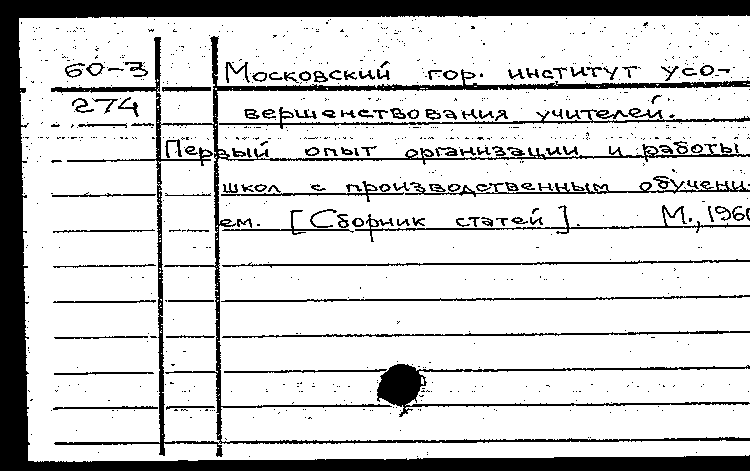 60-3 Московский гор. институт усо-
274 вершенствования учителей.
Первый опыт организации и работы
школ с производственным обучени-
ем. [Сборник статей]. М., 1960